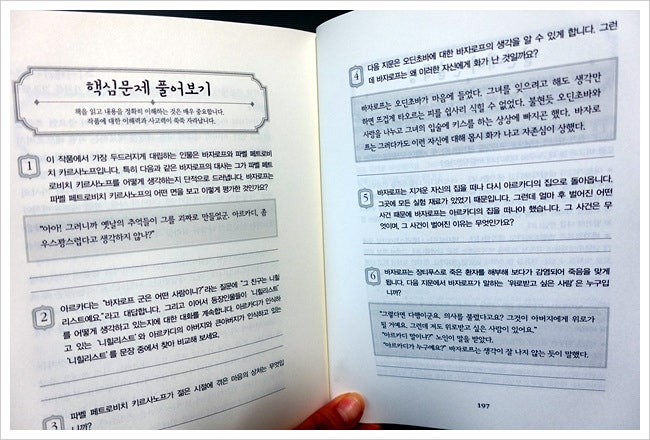 핵심문제 풀어보기
책을 읽고 내용을 정확히 이해하는 것은 매우 중요합니다.
작품에 대한 이해력과 사고력이 쑥쑥 자라납니다.
1
이 작품에서 가장 두드러지게 대립하는 인물은 바자로프와 파벨 페트로비
치 키르사노프입니다. 특히 다음과 같은 바자로프의 대사는 그가 파벨 페트
로비치 키르사노프를 어떻게 생각하는지 단적으로 드러냅니다. 바자로프는
파벨 페트로비치 키르사노프의 어떤 면을 보고 이렇게 평가한 것인가요?
"아아! 그러니까 옛날의 추억들이 그를 괴짜로 만들었군. 아르카디, 좀
우스꽝스럽다고 생각하지 않나?"
2
아르카디는 "바자로프 군은 어떤 사람이냐?"라는 질문에 "그 친구는 니힐
리스트예요."라고 대답합니다. 그리고 이어서 등장인물들이 '니힐리스트'
를 어떻게 생각하고 있는지에 대한 대화를 계속합니다. 아르카디가 인식하
고 있는 '니힐리스트'와 아르카디의 아버지와 큰아버지가 인식하고 있는
'니힐리스트'를 문장 중에서 찾아 비교해 보세요.
3
파벨 페트로비치 키르사노프가 젊은 시절에 겪은 마음의 상처는 무엇입
니까?
4
다음 지문은 오딘초바에 대한 바자로프의 생각을 알 수 있게 합니다. 그런
데 바자로프는 왜 이러한 자신에게 화가 난 것일까요?
바자로프는 오딘초바가 마음에 들었다. 그녀를 잊으려고 해도 생각만
하면 뜨겁게 타오르는 피를 쉽사리 식힐 수 없었다. 불현듯 오딘초바와
사랑을 나누고 그녀의 입술에 키스를 하는 상상에 빠지곤 했다. 바자로
프는 그러다가도 이런 자신에 대해 몹시 화가 나고 자존심이 상했다.
5
바자로프는 지겨운 자신의 집을 떠나 다시 아르카디의 집으로 돌아옵니다.
그곳에 모든 실험 재료가 있었기 때문입니다. 그런데 얼마 후 벌어진 어떤
사건 때문에 바자로프는 아르카디의 집을 떠나야 했습니다. 그 사건은 무
엇이며, 그 사건이 벌어진 이유는 무엇인가요?
6
바자로프는 장티푸스로 죽은 환자를 해부해 보다가 감염되어 죽음을 맞게
됩니다. 다음 지문에서 바자로프가 말하는 '위로받고 싶은 사람'은 누구입
니까?
"그렇다면 다행이군요. 의사를 불렀다고요? 그것이 아버지에게 위로가
될 거예요. 그런데 저도 위로받고 싶은 사람이 있어요."
"아르카디 말이냐?" 노인이 말을 받았다.
"아르카디가 누구예요?" 바자로프는 생각이 잘 나지 않는 듯이 말했다.
197